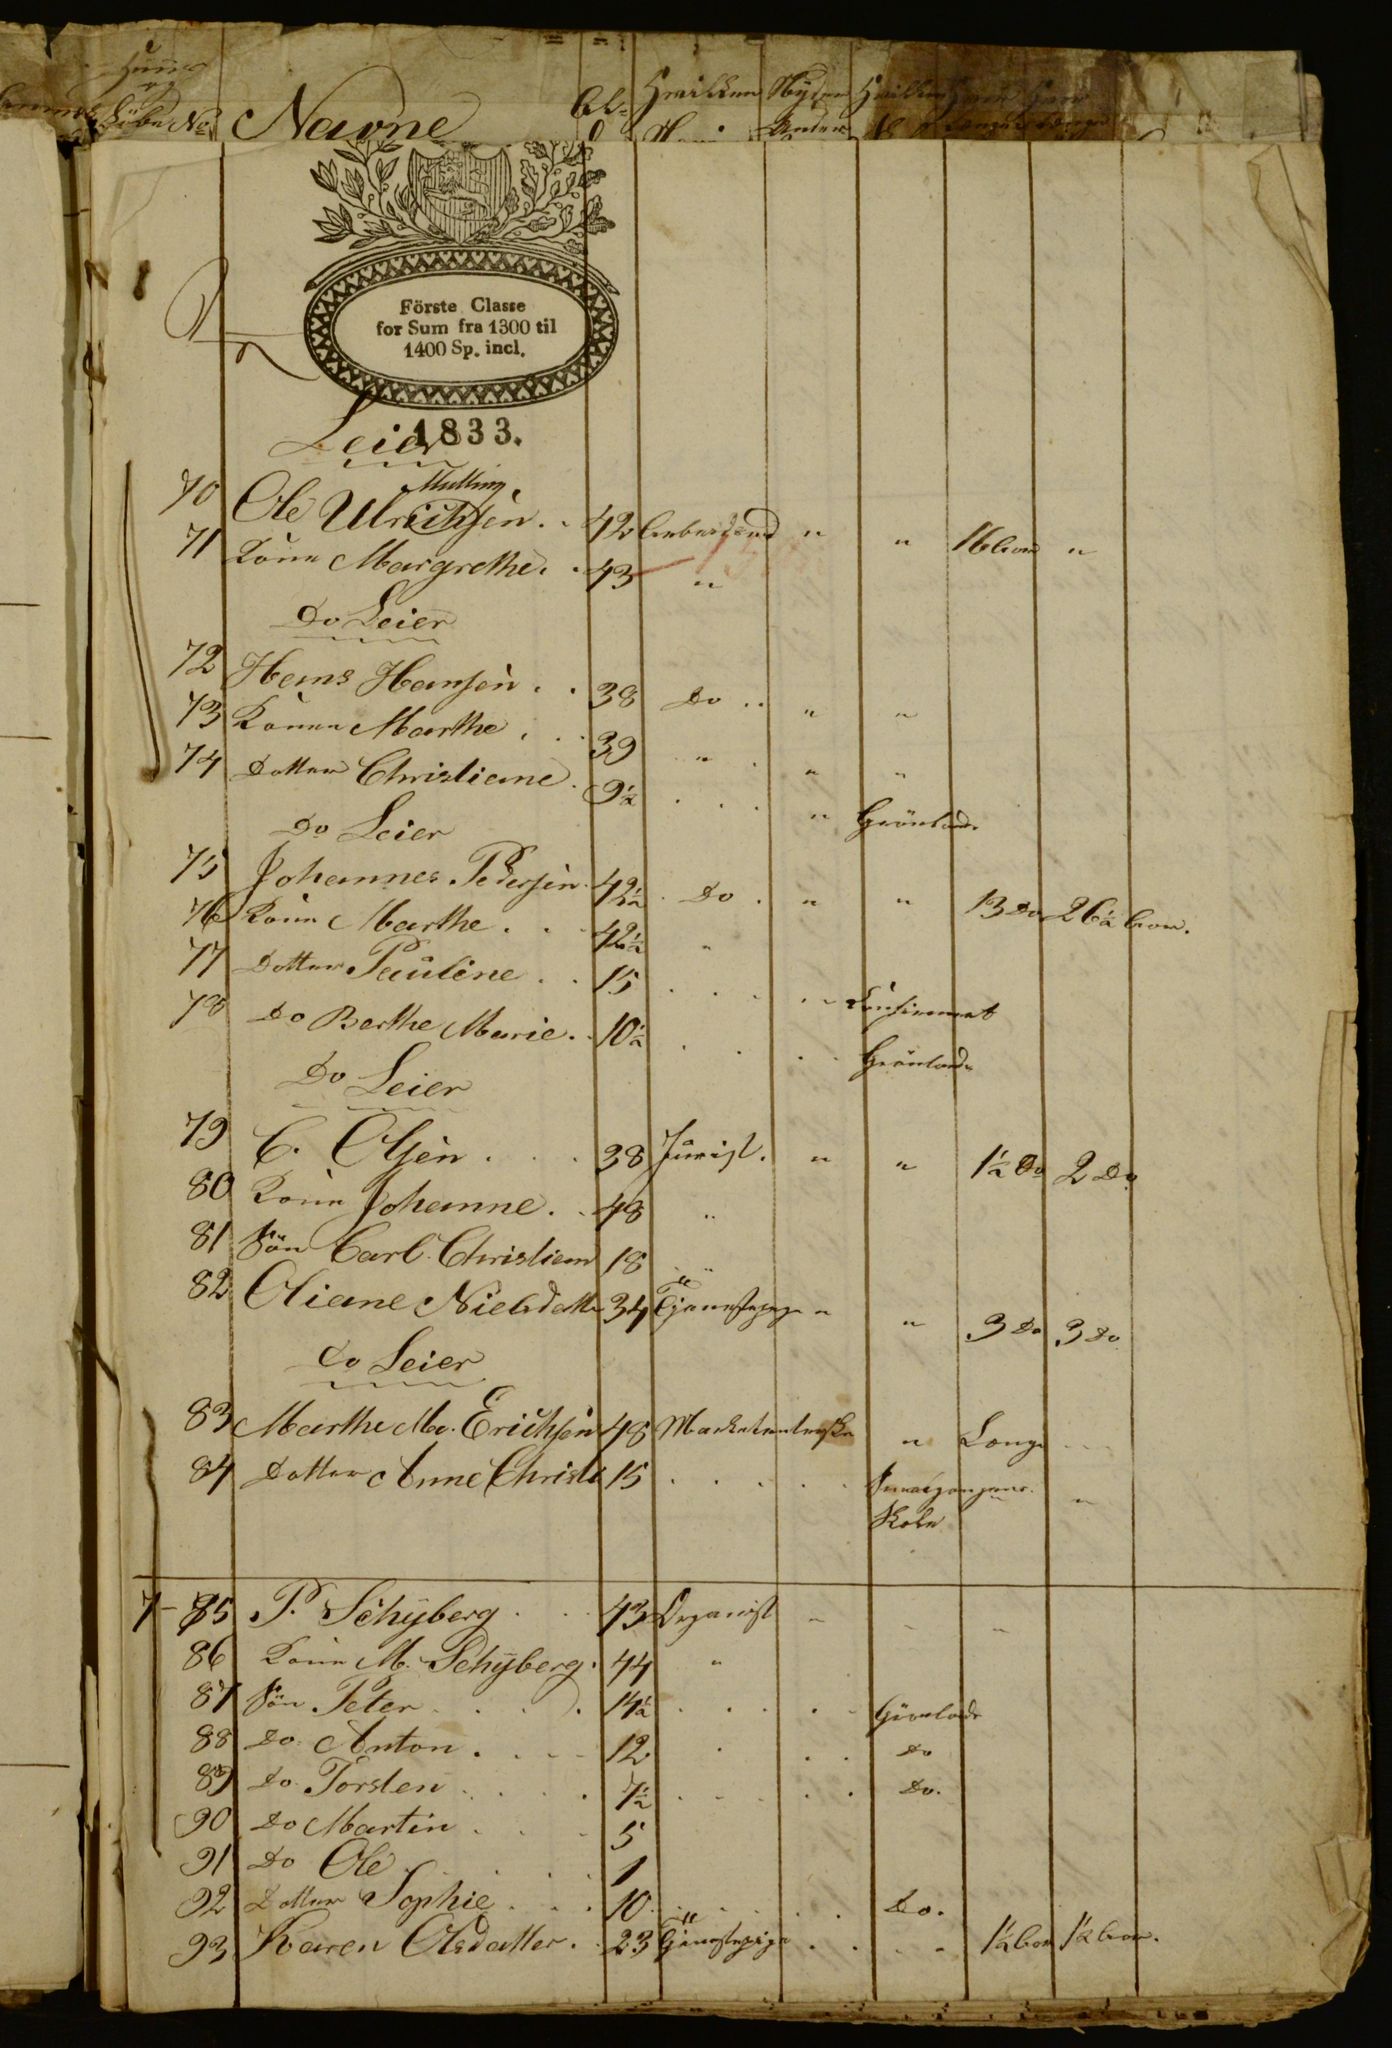 Huus og
Løbe No Navne Al- Hvilken Nyder Hvilken
Förste Classe
for Sum fra 1300 til
1400 Sp. incl.
1833.
Leier
Mulling.
70 Ole Ulrichsen . . 42 Arbeidsmd " " 16 Aar "
71 Kone Margrethe . . 43 "
Do Leier
72 Hans Hansen . . 38 Do . . " "
73 Konen Marthe . . . 39 " . " "
74 Datter Christiane . 9½ . . . "
Do Leier
75 Johannes Pedersen . 42½ . Do . " " 13 Do 26½ Aar.
76 Kone Marthe . . . 42½ "
77 Datter Pauline . . 15 . . . . " Confirmeret
78 Do Berthe Marie . . 10½ . . .
Do Leier
79 C. Olsen . . . 38 Jurist . " " 1½ Do 2 Do
80 Kone Johanne . . 48 "
81 Søn Carl Christian 18 . "
82 Oliane Nielsdatter 34 Tjenestepige " " 3 Do 3 Do
Do Leier
83 Marthe Ma. Erichsen 48 Marketenterske " Længe . . .
84 Datter Anne Christi 15 . . . . . "
Skole
7 - 85 P. Schyberg . . . 43 Organist " " "
86 Kone M. Schyberg . 44 "
87 Søn Peter . . . . 14½ . . . .
88 Do Anton . . . . 12 . . . Do
89 Do Torsten . . . . 7½ . . . . . Do.
90 Do Martin . . . 5
91 Do Ole . . . . . 1
92 Datter Sophie . . . 10 . . . . . Do.
93 Karen Olsdatter . . 23 Tjenestepige . . . . 1½ Aar 1½ Aar.